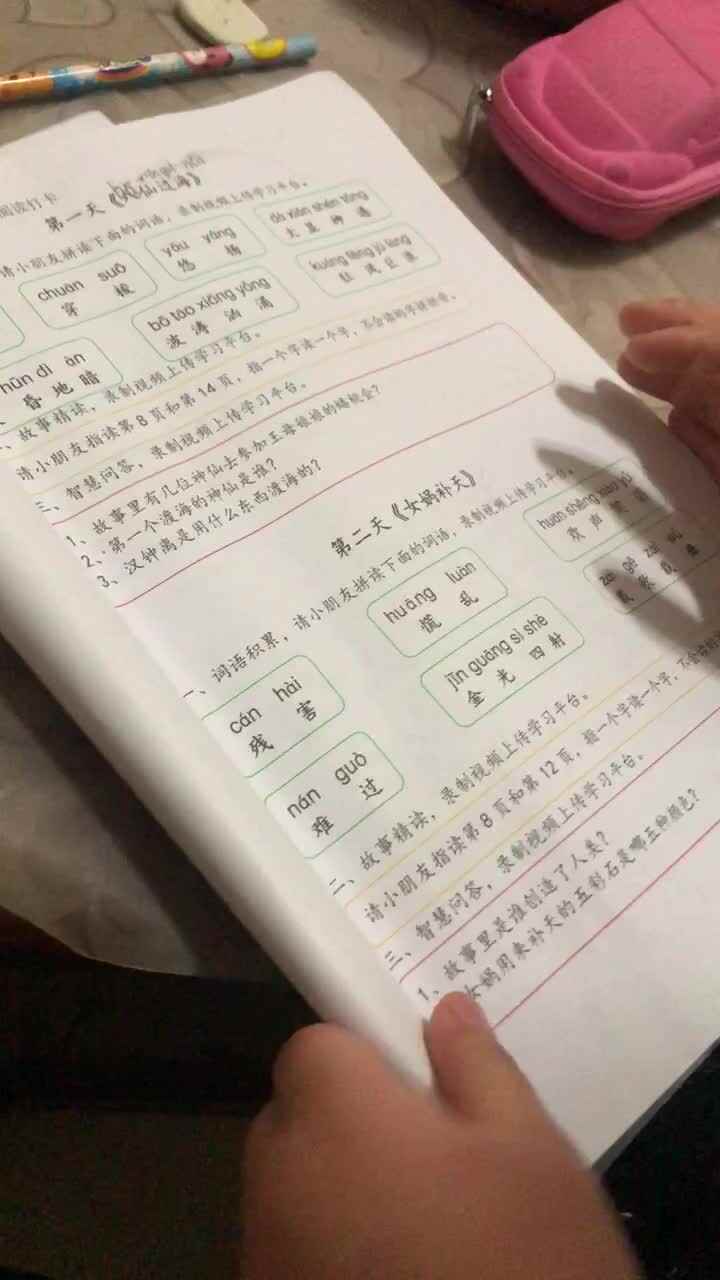 阅读打卡
第一天《八仙过海》
请小朋友拼读下面的词语，录制视频上传学习平台。
chuān suō
穿 梭
yōu yáng
悠 扬
dà xiǎn shén tōng
大 显 神 通
hūn dì àn
昏 地 暗
bō tāo xiōng yǒng
波 涛 汹 涌
kuáng fēng jù làng
狂 风 巨 浪
、故事精读，录制视频上传学习平台。
请小朋友指读第 8 页和第 14 页，指一个字读一个字，不会读的字
三、智慧问答，录制视频上传学习平台。
1、故事里有几位神仙去参加王母娘娘的蟠桃会？
2、第一个渡海的神仙是谁？
3、汉钟离是用什么东西渡海的？
第二天《女娲补天》
一、词语积累，请小朋友拼读下面的词语，录制视频上传学习平台。
cán hài
残 害
huāng luàn
慌 乱
huān shēng xiào yǔ
欢 声 笑 语
nán guò
难 过
jīn guāng sì shè
金 光 四 射
zài gē zài wǔ
载 歌 载
二、故事精读，录制视频上传学习平台。
请小朋友指读第 8 页和第 12 页，指一个字读一个字，不会读的
三、智慧问答，录制视频上传学习平台。
1、故事里是谁创造了人类？
女娲用来补天的五彩石是哪五种颜色？